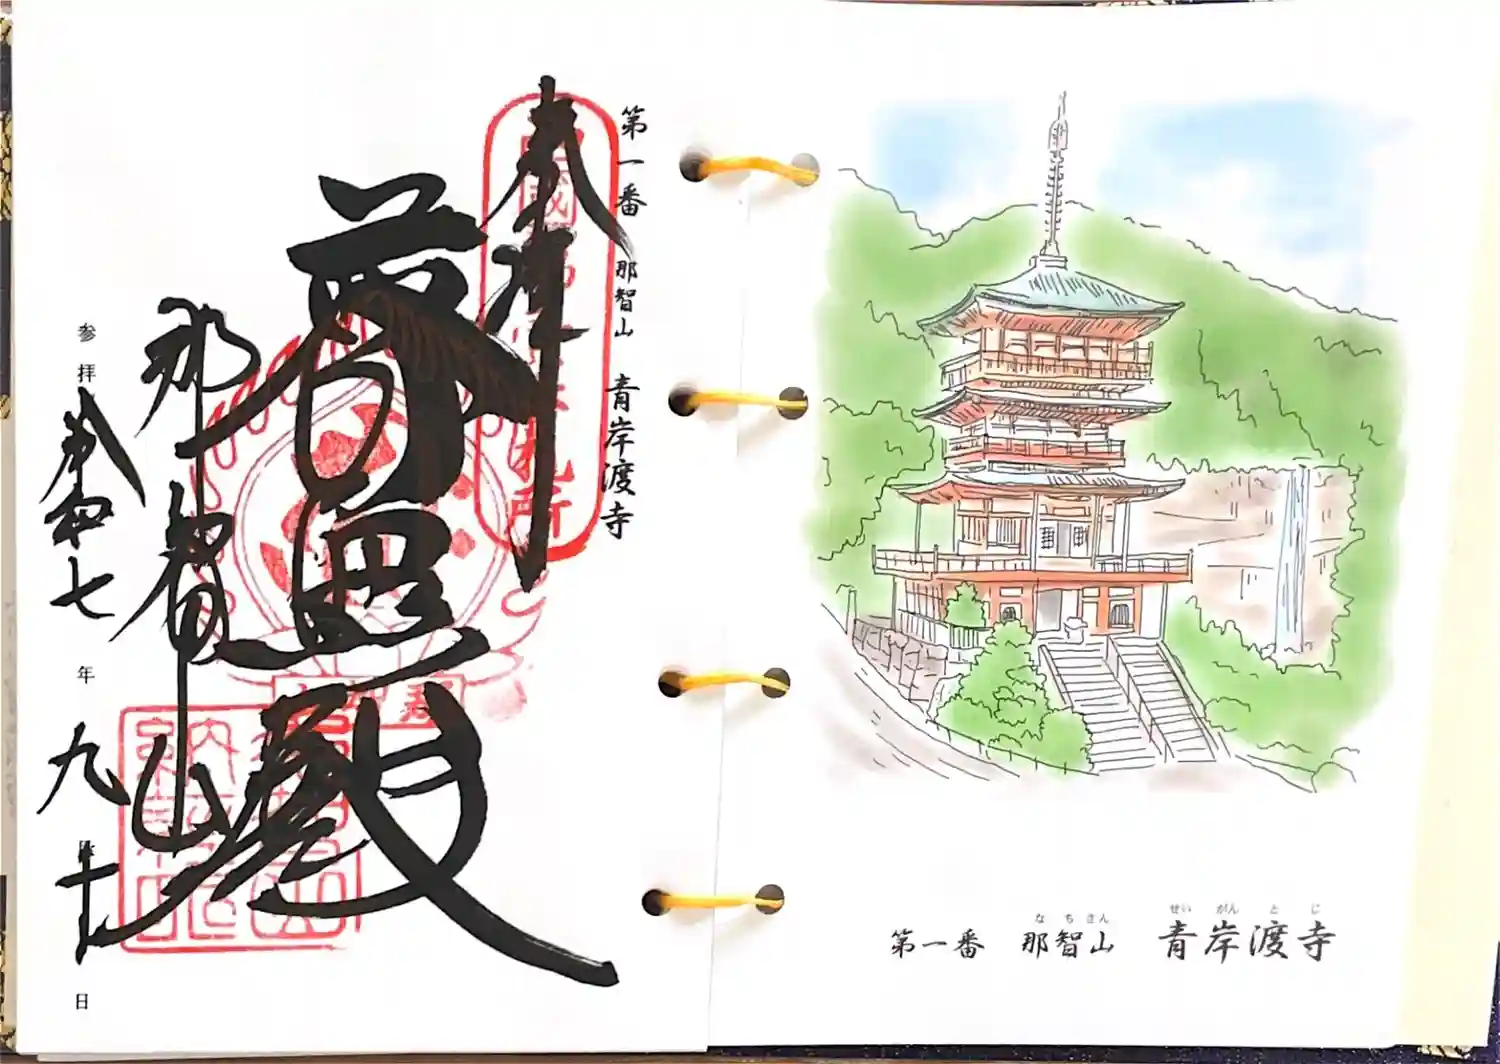 第一番 那智山 青岸渡寺
奉拝
普照殿
那智山
参拝 令和七年九月十日
なちさん せいがんとじ
第一番 那智山 青岸渡寺